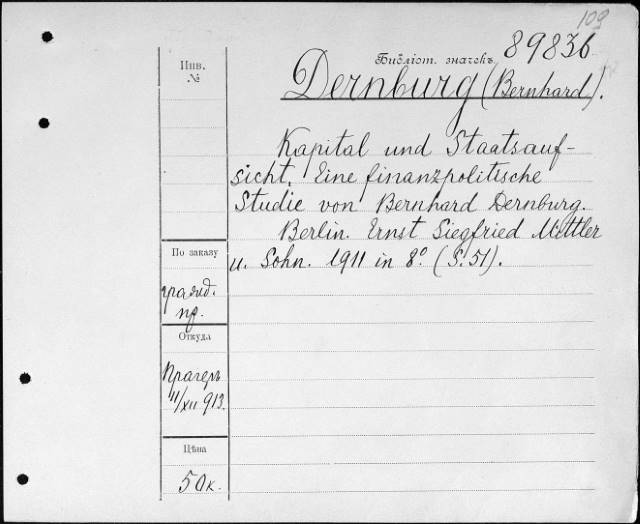 109
Инв.
№
Библіот. значекъ 89836
Dernburg (Bernhard).
Kapital und Staatsauf-
sicht. Eine finanzpolitische
Studie von Bernhard Dernburg.
Berlin. Ernst Siegfried Mittler
u. Sohn. 1911 in 8° (S. 51).
По заказу
гражд.
пр.
Откуда
Прагеръ
11/XII 913.
Цѣна
50к.